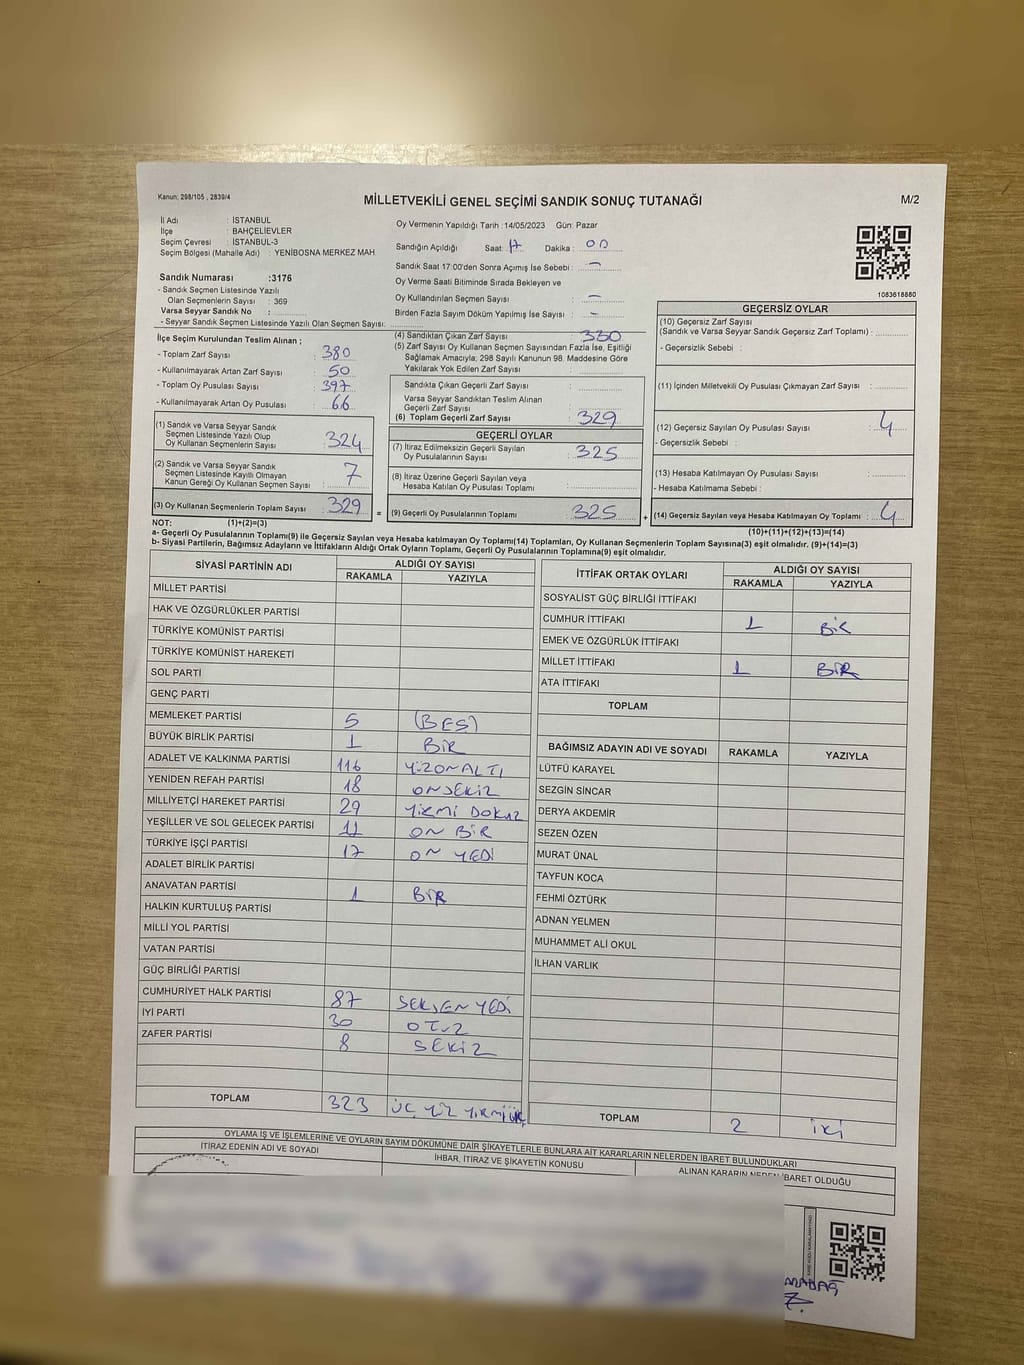 Kanun; 298/105 , 2839/4
MİLLETVEKİLİ GENEL SEÇİMİ SANDIK SONUÇ TUTANAĞI
M/2
İl Adı : İSTANBUL
İlçe : BAHÇELİEVLER
Seçim Çevresi : İSTANBUL-3
Seçim Bölgesi (Mahalle Adı) : YENİBOSNA MERKEZ MAH
Sandık Numarası :3176
- Sandık Seçmen Listesinde Yazılı
Olan Seçmenlerin Sayısı : 369
Varsa Seyyar Sandık No :
- Seyyar Sandık Seçmen Listesinde Yazılı Olan Seçmen Sayısı:
Oy Vermenin Yapıldığı Tarih :14/05/2023 Gün: Pazar
Sandığın Açıldığı Saat: 17 Dakika : 00
Sandık Saat 17:00'den Sonra Açımış İse Sebebi : –
Oy Verme Saati Bitiminde Sırada Bekleyen ve
Oy Kullandırılan Seçmen Sayısı : –
Birden Fazla Sayım Döküm Yapılmış İse Sayısı : –
1083618880
İlçe Seçim Kurulundan Teslim Alınan ;
- Toplam Zarf Sayısı : 380
- Kullanılmayarak Artan Zarf Sayısı : 50
- Toplam Oy Pusulası Sayısı : 397
- Kullanılmayarak Artan Oy Pusulası : 66
(1) Sandık ve Varsa Seyyar Sandık
Seçmen Listesinde Yazılı Olup
Oy Kullanan Seçmenlerin Sayısı : 324
(2) Sandık ve Varsa Seyyar Sandık
Seçmen Listesinde Kayıtlı Olmayan
Kanun Gereği Oy Kullanan Seçmen Sayısı : 7
(3) Oy Kullanan Seçmenlerin Toplam Sayısı : 329
(4) Sandıktan Çıkan Zarf Sayısı : 330
(5) Zarf Sayısı Oy Kullanan Seçmen Sayısından Fazla İse, Eşitliği
Sağlamak Amacıyla; 298 Sayılı Kanunun 98. Maddesine Göre
Yakılarak Yok Edilen Zarf Sayısı :
Sandıkta Çıkan Geçerli Zarf Sayısı :
Varsa Seyyar Sandıktan Teslim Alınan
Geçerli Zarf Sayısı :
(6) Toplam Geçerli Zarf Sayısı : 329
GEÇERLİ OYLAR
(7) İtiraz Edilmeksizin Geçerli Sayılan
Oy Pusulalarının Sayısı : 325
(8) İtiraz Üzerine Geçerli Sayılan veya
Hesaba Katılan Oy Pusulası Toplamı :
= (9) Geçerli Oy Pusulalarının Toplamı : 325
GEÇERSİZ OYLAR
(10) Geçersiz Zarf Sayısı
(Sandık ve Varsa Seyyar Sandık Geçersiz Zarf Toplamı) :
- Geçersizlik Sebebi :
(11) İçinden Milletvekili Oy Pusulası Çıkmayan Zarf Sayısı :
(12) Geçersiz Sayılan Oy Pusulası Sayısı : 4
- Geçersizlik Sebebi :
(13) Hesaba Katılmayan Oy Pusulası Sayısı :
- Hesaba Katılmama Sebebi :
+ (14) Geçersiz Sayılan veya Hesaba Katılmayan Oy Toplamı : 4
NOT: (1)+(2)=(3) (10)+(11)+(12)+(13)=(14)
a- Geçerli Oy Pusulalarının Toplamı(9) ile Geçersiz Sayılan veya Hesaba katılmayan Oy Toplamı(14) Toplamları, Oy Kullanan Seçmenlerin Toplam Sayısına(3) eşit olmalıdır. (9)+(14)=(3)
b- Siyasi Partilerin, Bağımsız Adayların ve İttifakların Aldığı Ortak Oyların Toplamı, Geçerli Oy Pusulalarının Toplamına(9) eşit olmalıdır.
SİYASİ PARTİNİN ADI ALDIĞI OY SAYISI
RAKAMLA YAZIYLA
MİLLET PARTİSİ
HAK VE ÖZGÜRLÜKLER PARTİSİ
TÜRKİYE KOMÜNİST PARTİSİ
TÜRKİYE KOMÜNİST HAREKETİ
SOL PARTİ
GENÇ PARTİ
MEMLEKET PARTİSİ 5 (BEŞ)
BÜYÜK BİRLİK PARTİSİ 1 BİR
ADALET VE KALKINMA PARTİSİ 116 YÜZONALTI
YENİDEN REFAH PARTİSİ 18 ONSEKİZ
MİLLİYETÇİ HAREKET PARTİSİ 29 YİRMİ DOKUZ
YEŞİLLER VE SOL GELECEK PARTİSİ 11 ON BİR
TÜRKİYE İŞÇİ PARTİSİ 17 ON YEDİ
ADALET BİRLİK PARTİSİ
ANAVATAN PARTİSİ 1 BİR
HALKIN KURTULUŞ PARTİSİ
MİLLİ YOL PARTİSİ
VATAN PARTİSİ
GÜÇ BİRLİĞİ PARTİSİ
CUMHURİYET HALK PARTİSİ 87 SEKSEN YEDİ
İYİ PARTİ 30 OTUZ
ZAFER PARTİSİ 8 SEKİZ
TOPLAM 323 ÜÇ YÜZ YİRMİ ÜÇ
İTTİFAK ORTAK OYLARI ALDIĞI OY SAYISI
RAKAMLA YAZIYLA
SOSYALİST GÜÇ BİRLİĞİ İTTİFAKI
CUMHUR İTTİFAKI 1 BİR
EMEK VE ÖZGÜRLÜK İTTİFAKI
MİLLET İTTİFAKI 1 BİR
ATA İTTİFAKI
TOPLAM
BAĞIMSIZ ADAYIN ADI VE SOYADI RAKAMLA YAZIYLA
LÜTFÜ KARAYEL
SEZGİN SİNCAR
DERYA AKDEMİR
SEZEN ÖZEN
MURAT ÜNAL
TAYFUN KOCA
FEHMİ ÖZTÜRK
ADNAN YELMEN
MUHAMMET ALİ OKUL
İLHAN VARLIK
TOPLAM 2 İKİ
OYLAMA İŞ VE İŞLEMLERİNE VE OYLARIN SAYIM DÖKÜMÜNE DAİR ŞİKAYETLERLE BUNLARA AİT KARARLARIN NELERDEN İBARET BULUNDUKLARI
İTİRAZ EDENİN ADI VE SOYADI İHBAR, İTİRAZ VE ŞİKAYETİN KONUSU ALINAN KARARIN NEDEN İBARET OLDUĞU